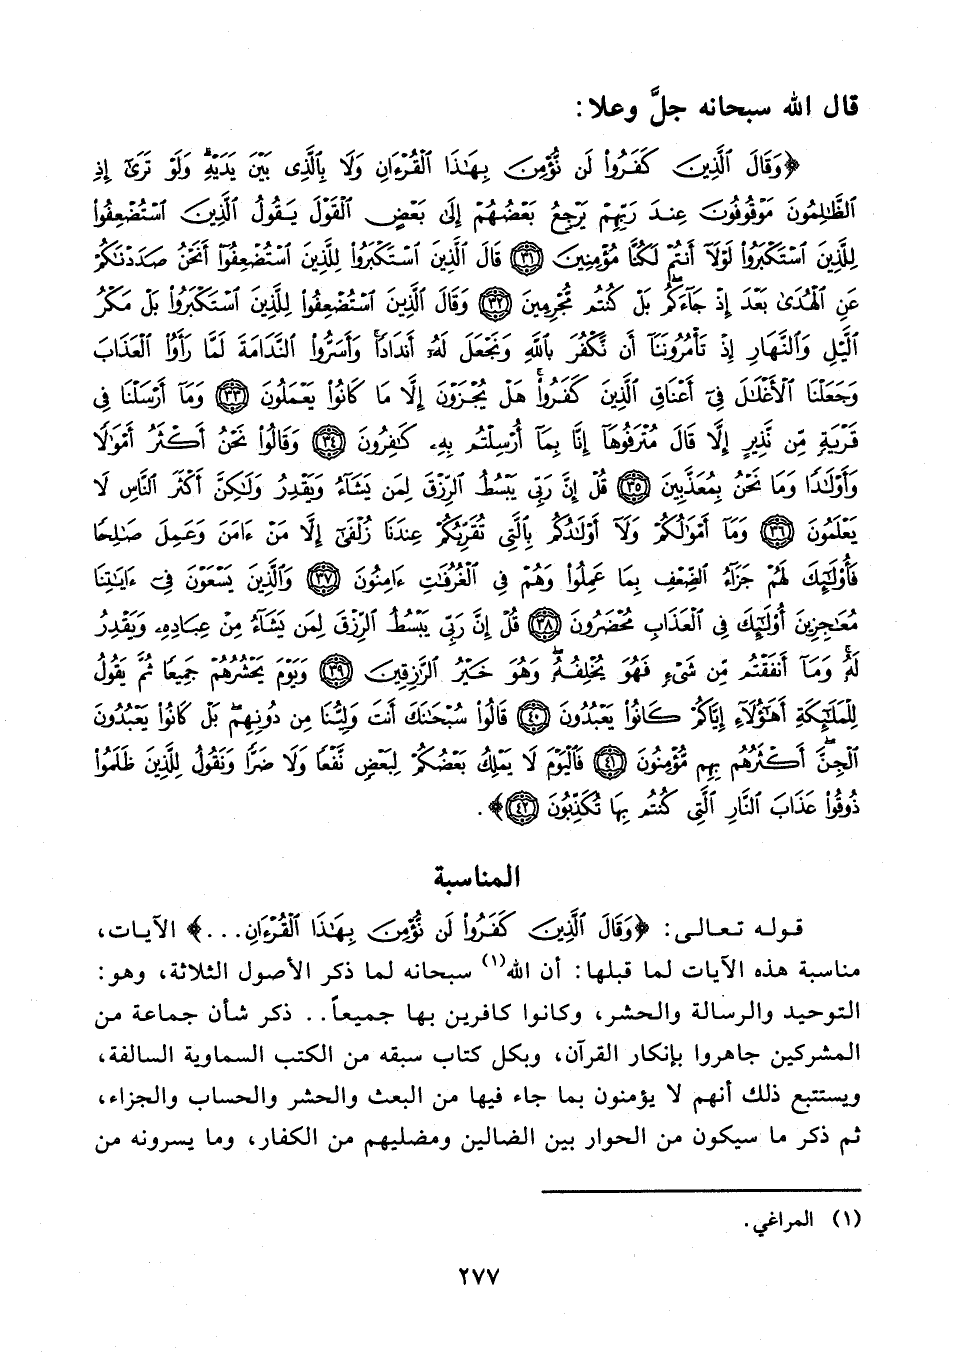 قال الله سبحانه جلَّ وعلا:
﴿وَقَالَ ٱلَّذِينَ كَفَرُوا۟ لَن نُّؤْمِنَ بِهَٰذَا ٱلْقُرْءَانِ وَلَا بِٱلَّذِى بَيْنَ يَدَيْهِ ۗ وَلَوْ تَرَىٰٓ إِذِ
ٱلظَّٰلِمُونَ مَوْقُوفُونَ عِندَ رَبِّهِمْ يَرْجِعُ بَعْضُهُمْ إِلَىٰ بَعْضٍ ٱلْقَوْلَ يَقُولُ ٱلَّذِينَ ٱسْتُضْعِفُوا۟
لِلَّذِينَ ٱسْتَكْبَرُوا۟ لَوْلَآ أَنتُمْ لَكُنَّا مُؤْمِنِينَ ﴿٣١﴾ قَالَ ٱلَّذِينَ ٱسْتَكْبَرُوا۟ لِلَّذِينَ ٱسْتُضْعِفُوٓا۟ أَنَحْنُ صَدَدْنَٰكُمْ
عَنِ ٱلْهُدَىٰ بَعْدَ إِذْ جَآءَكُم ۖ بَلْ كُنتُم مُّجْرِمِينَ ﴿٣٢﴾ وَقَالَ ٱلَّذِينَ ٱسْتُضْعِفُوا۟ لِلَّذِينَ ٱسْتَكْبَرُوا۟ بَلْ مَكْرُ
ٱلَّيْلِ وَٱلنَّهَارِ إِذْ تَأْمُرُونَنَآ أَن نَّكْفُرَ بِٱللَّهِ وَنَجْعَلَ لَهُۥٓ أَندَادًا ۚ وَأَسَرُّوا۟ ٱلنَّدَامَةَ لَمَّا رَأَوُا۟ ٱلْعَذَابَ
وَجَعَلْنَا ٱلْأَغْلَٰلَ فِىٓ أَعْنَاقِ ٱلَّذِينَ كَفَرُوا۟ ۚ هَلْ يُجْزَوْنَ إِلَّا مَا كَانُوا۟ يَعْمَلُونَ ﴿٣٣﴾ وَمَآ أَرْسَلْنَا فِى
قَرْيَةٍ مِّن نَّذِيرٍ إِلَّا قَالَ مُتْرَفُوهَآ إِنَّا بِمَآ أُرْسِلْتُم بِهِۦ كَٰفِرُونَ ﴿٣٤﴾ وَقَالُوا۟ نَحْنُ أَكْثَرُ أَمْوَٰلًا
وَأَوْلَٰدًا وَمَا نَحْنُ بِمُعَذَّبِينَ ﴿٣٥﴾ قُلْ إِنَّ رَبِّى يَبْسُطُ ٱلرِّزْقَ لِمَن يَشَآءُ وَيَقْدِرُ وَلَٰكِنَّ أَكْثَرَ ٱلنَّاسِ لَا
يَعْلَمُونَ ﴿٣٦﴾ وَمَآ أَمْوَٰلُكُمْ وَلَآ أَوْلَٰدُكُم بِٱلَّتِى تُقَرِّبُكُمْ عِندَنَا زُلْفَىٰٓ إِلَّا مَنْ ءَامَنَ وَعَمِلَ صَٰلِحًا
فَأُو۟لَٰٓئِكَ لَهُمْ جَزَآءُ ٱلضِّعْفِ بِمَا عَمِلُوا۟ وَهُمْ فِى ٱلْغُرُفَٰتِ ءَامِنُونَ ﴿٣٧﴾ وَٱلَّذِينَ يَسْعَوْنَ فِىٓ ءَايَٰتِنَا
مُعَٰجِزِينَ أُو۟لَٰٓئِكَ فِى ٱلْعَذَابِ مُحْضَرُونَ ﴿٣٨﴾ قُلْ إِنَّ رَبِّى يَبْسُطُ ٱلرِّزْقَ لِمَن يَشَآءُ مِنْ عِبَادِهِۦ وَيَقْدِرُ
لَهُۥ ۚ وَمَآ أَنفَقْتُم مِّن شَىْءٍ فَهُوَ يُخْلِفُهُۥ ۖ وَهُوَ خَيْرُ ٱلرَّٰزِقِينَ ﴿٣٩﴾ وَيَوْمَ يَحْشُرُهُمْ جَمِيعًا ثُمَّ يَقُولُ
لِلْمَلَٰٓئِكَةِ أَهَٰٓؤُلَآءِ إِيَّاكُمْ كَانُوا۟ يَعْبُدُونَ ﴿٤٠﴾ قَالُوا۟ سُبْحَٰنَكَ أَنتَ وَلِيُّنَا مِن دُونِهِم ۖ بَلْ كَانُوا۟ يَعْبُدُونَ
ٱلْجِنَّ ۖ أَكْثَرُهُم بِهِم مُّؤْمِنُونَ ﴿٤١﴾ فَٱلْيَوْمَ لَا يَمْلِكُ بَعْضُكُمْ لِبَعْضٍ نَّفْعًا وَلَا ضَرًّا وَنَقُولُ لِلَّذِينَ ظَلَمُوا۟
ذُوقُوا۟ عَذَابَ ٱلنَّارِ ٱلَّتِى كُنتُم بِهَا تُكَذِّبُونَ ﴿٤٢﴾﴾.
المناسبة
قوله تعالى: ﴿وَقَالَ ٱلَّذِينَ كَفَرُوا۟ لَن نُّؤْمِنَ بِهَٰذَا ٱلْقُرْءَانِ...﴾ الآيات،
مناسبة هذه الآيات لما قبلها: أن الله(١) سبحانه لما ذكر الأصول الثلاثة، وهو:
التوحيد والرسالة والحشر، وكانوا كافرين بها جميعاً.. ذكر شأن جماعة من
المشركين جاهروا بإنكار القرآن، وبكل كتاب سبقه من الكتب السماوية السالفة،
ويستتبع ذلك أنهم لا يؤمنون بما جاء فيها من البعث والحشر والحساب والجزاء،
ثم ذكر ما سيكون من الحوار بين الضالين ومضليهم من الكفار، وما يسرونه من
(١) المراغي.
٢٧٧